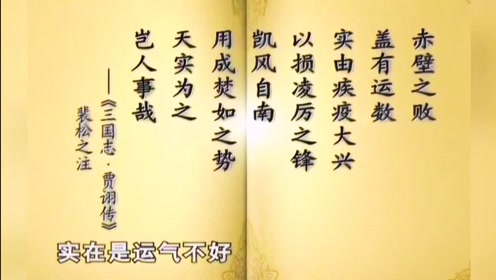 赤壁之败
盖有运数
实由疾疫大兴
以损凌厉之锋
凯风自南
用成焚如之势
天实为之
岂人事哉
——《三国志·贾诩传》
裴松之注
实在是运气不好